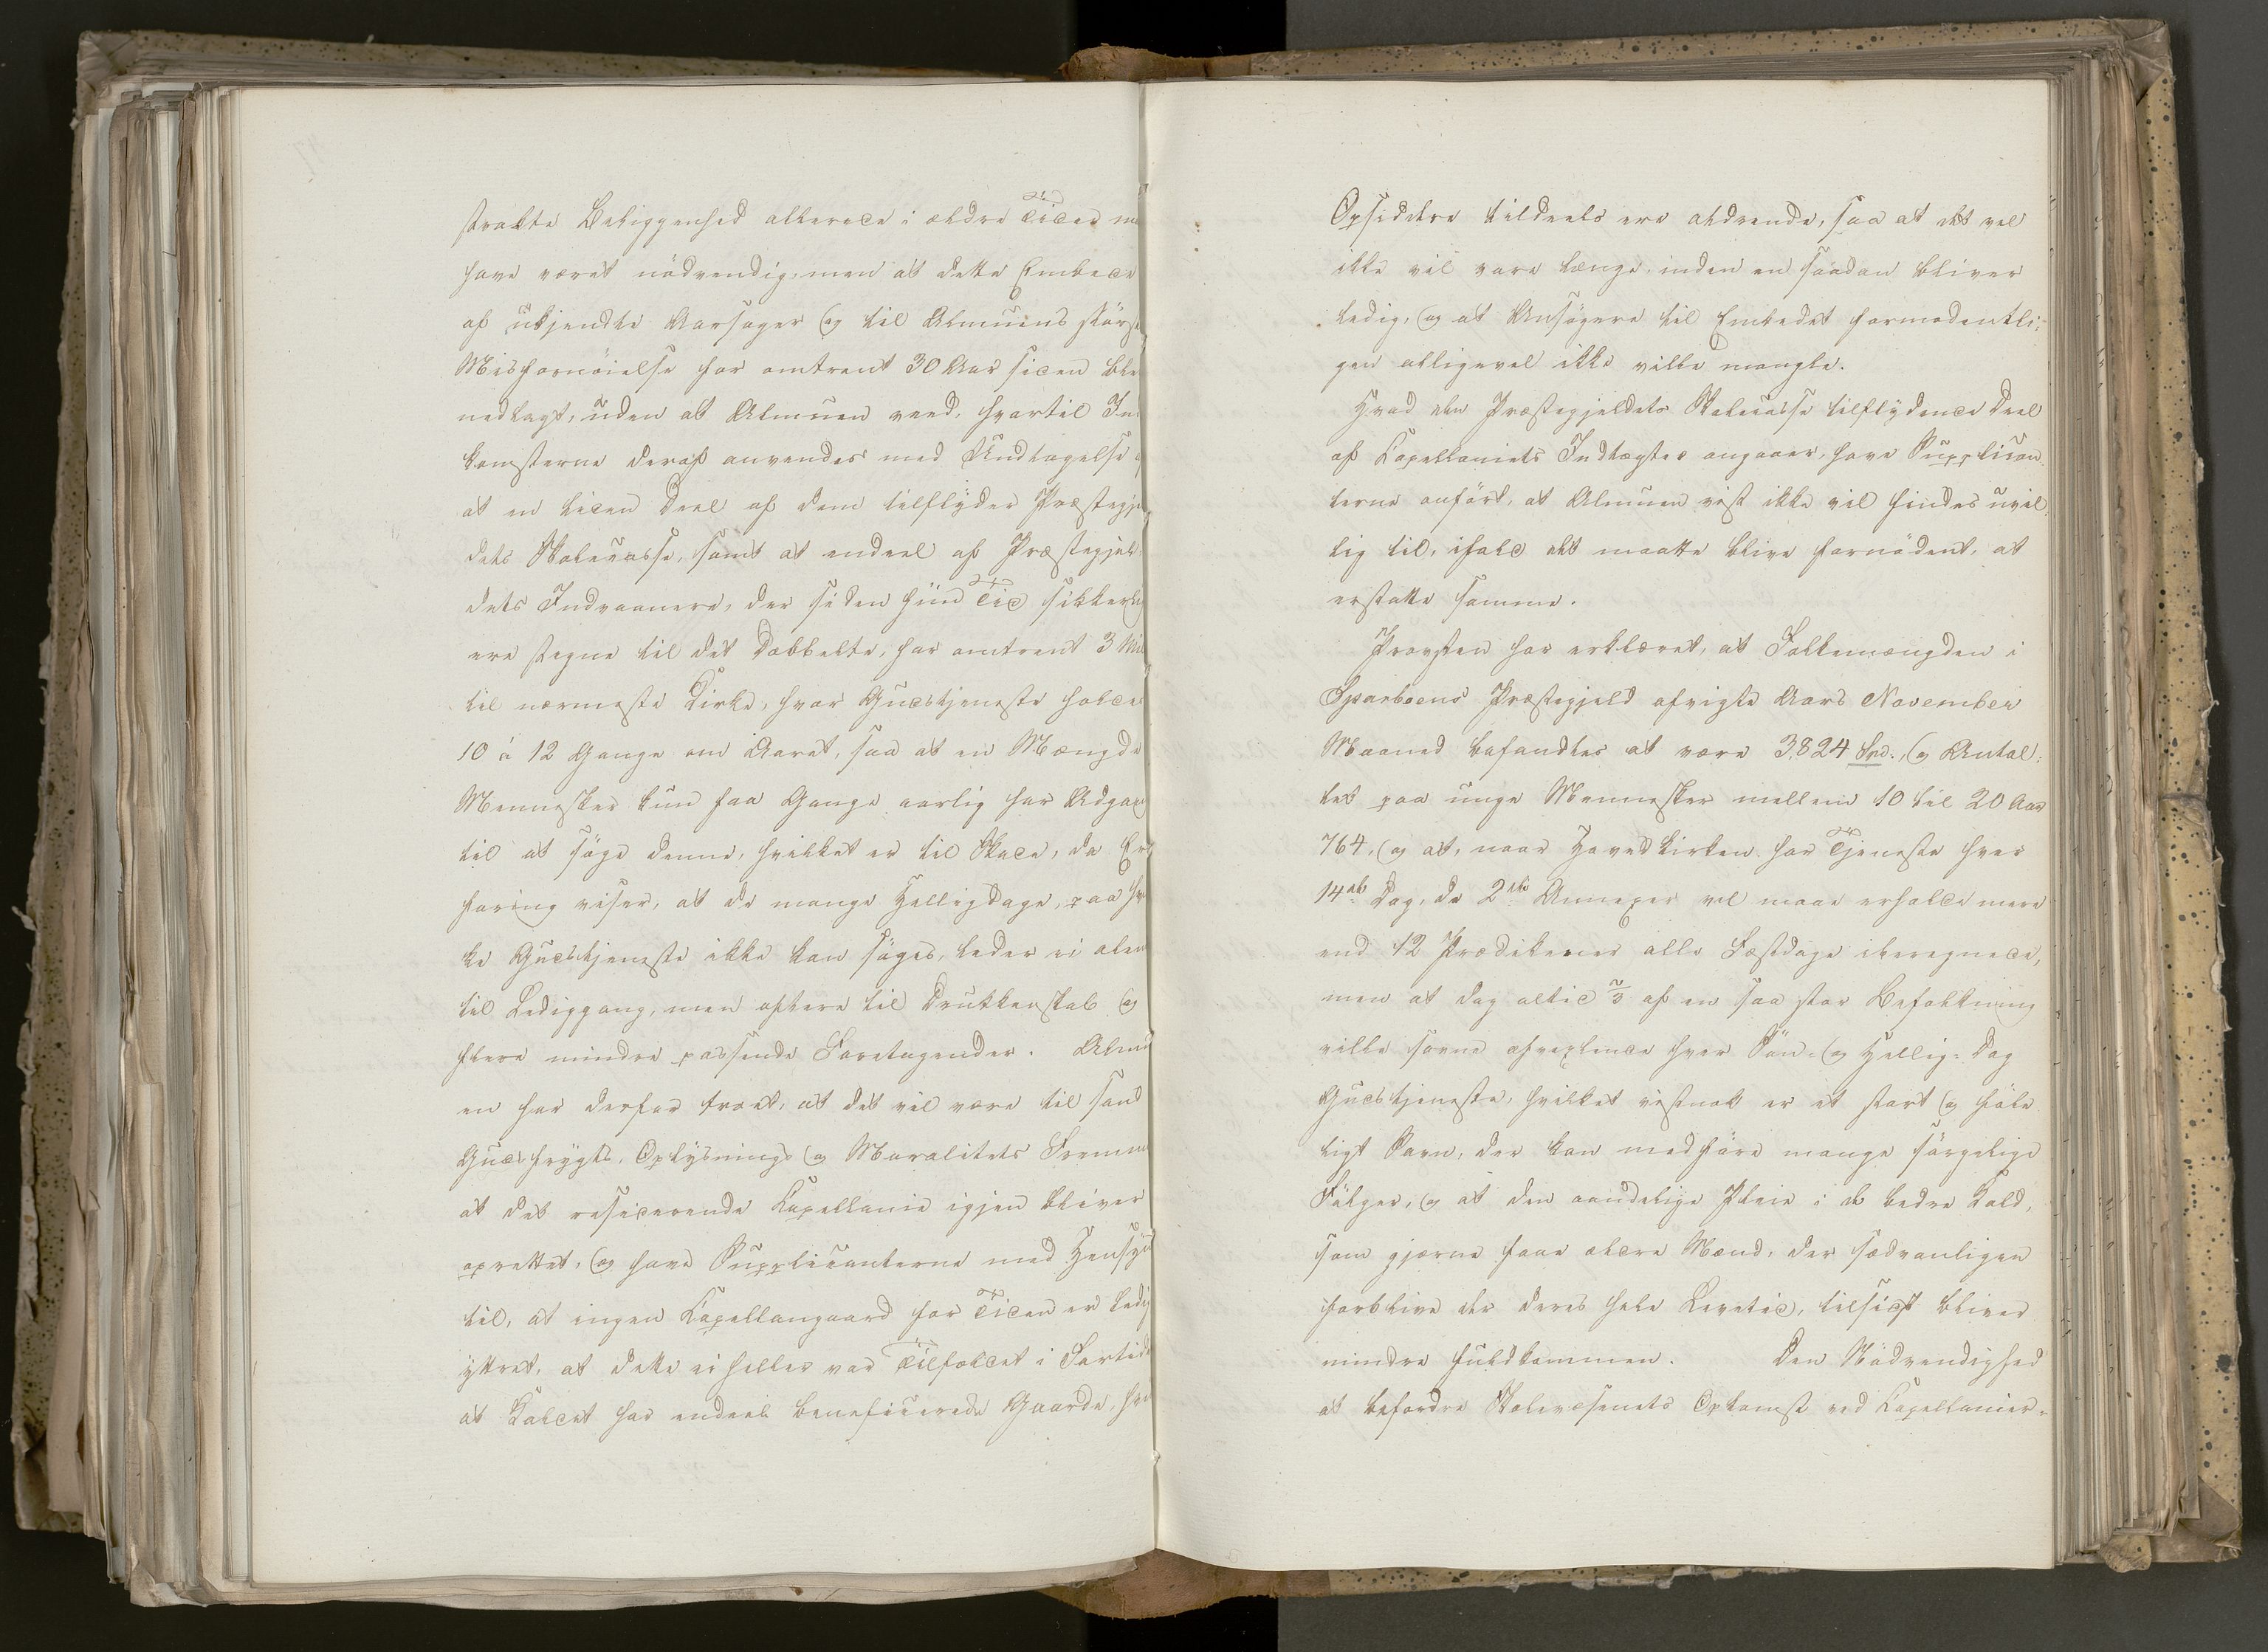 strakte Beliggenhed allerede i ældre Tider m
have været nödvendig, men at dette Embede
af ubjendte Aarsager og til Almuens störst
Misfornöielse for omtrent 30 Aar siden ble
nedlagt, uden at Almuen veed, hvortil In
komsterne deraf anvendes med Undtagelse
at en liden Deel af dem tilflyder Præstegje
dets Skolecasse, samt at endeel af Præstegjel
dets Indvaanere, der siden hiin Tid sikkerli
ere stegne til det Dobbelte, har omtrent 3 Mi
til nærmeste Kirke, hvor Gudstjeneste holdes
10 à 12 Gange om Aaret, saa at en Mængde
Mennesker kun faa Gange aarlig har Adgan
til at söge denne, hvilket er til Skade, da Er
faring viser, at de mange Helligdage, paa hv
ke Gudstjeneste ikke kan söges, leder ei alen
til Lediggang, men oftere til Drukkenskab og
flere mindre passende Foretagender. Almu
en har derfor troet, at det vil være til sand
Gudsfrygts, Oplysnings og Moralitets Fremme
at det residerende Capellanie igjen bliver
oprettet, og have Supplicanterne med Hensyn
til, at ingen Capellangaard for Tiden er ledig
yttret, at dette ei heller var Tilfældet i Fortide
at Kaldet har endeel beneficerede Gaarde, hvi
Opsiddere tildeels ere aldrende, saa at det vel
ikke vil vare længe, inden en saadan bliver
ledig, og at Ansögere til Embedet formodentli-
gen alligevel ikke ville mangle.
Hvad den Præstegjeldets Skolecasse tilflydende Deel
af Capellaniets Indtægter angaaer, have Supplican
terne anfört, at Almuen vist ikke vil findes uvil
lig til, ifald det maatte blive fornödent, at
erstatte samme.
Provsten har erklæret, at Folkemængden i
Sparboens Præstegjeld afvigte Aars November
Maaned befandtes at være 3,824 Spd., og Antal-
let paa unge Mennesker mellem 10 til 20 Aar
764, og at, naar Hovedkirken har Tjeneste hver
14de Dag, de 2de Annexer vel maae erholde mere
end 12 Prædikener alle Festdage iberegnede,
men at dog altid 2/3 af en saa stor Befolkning
ville savne afvexlende hver Sön- og Hellig-Dag
Gudstjeneste, hvilket vistnok er et stort og föle
ligt Savn, der kan medföre mange sörgelige
Fölger, og at den aandelige Pleie i de bedre Kald,
som gjerne faae ældre Mænd, der sædvanligen
forblive der deres hele Levetid, tilsidst bliver
mindre fuldkommen. Den Nödvendighed
at befordre Skolevæsenets Opkomst ved Capellanier-